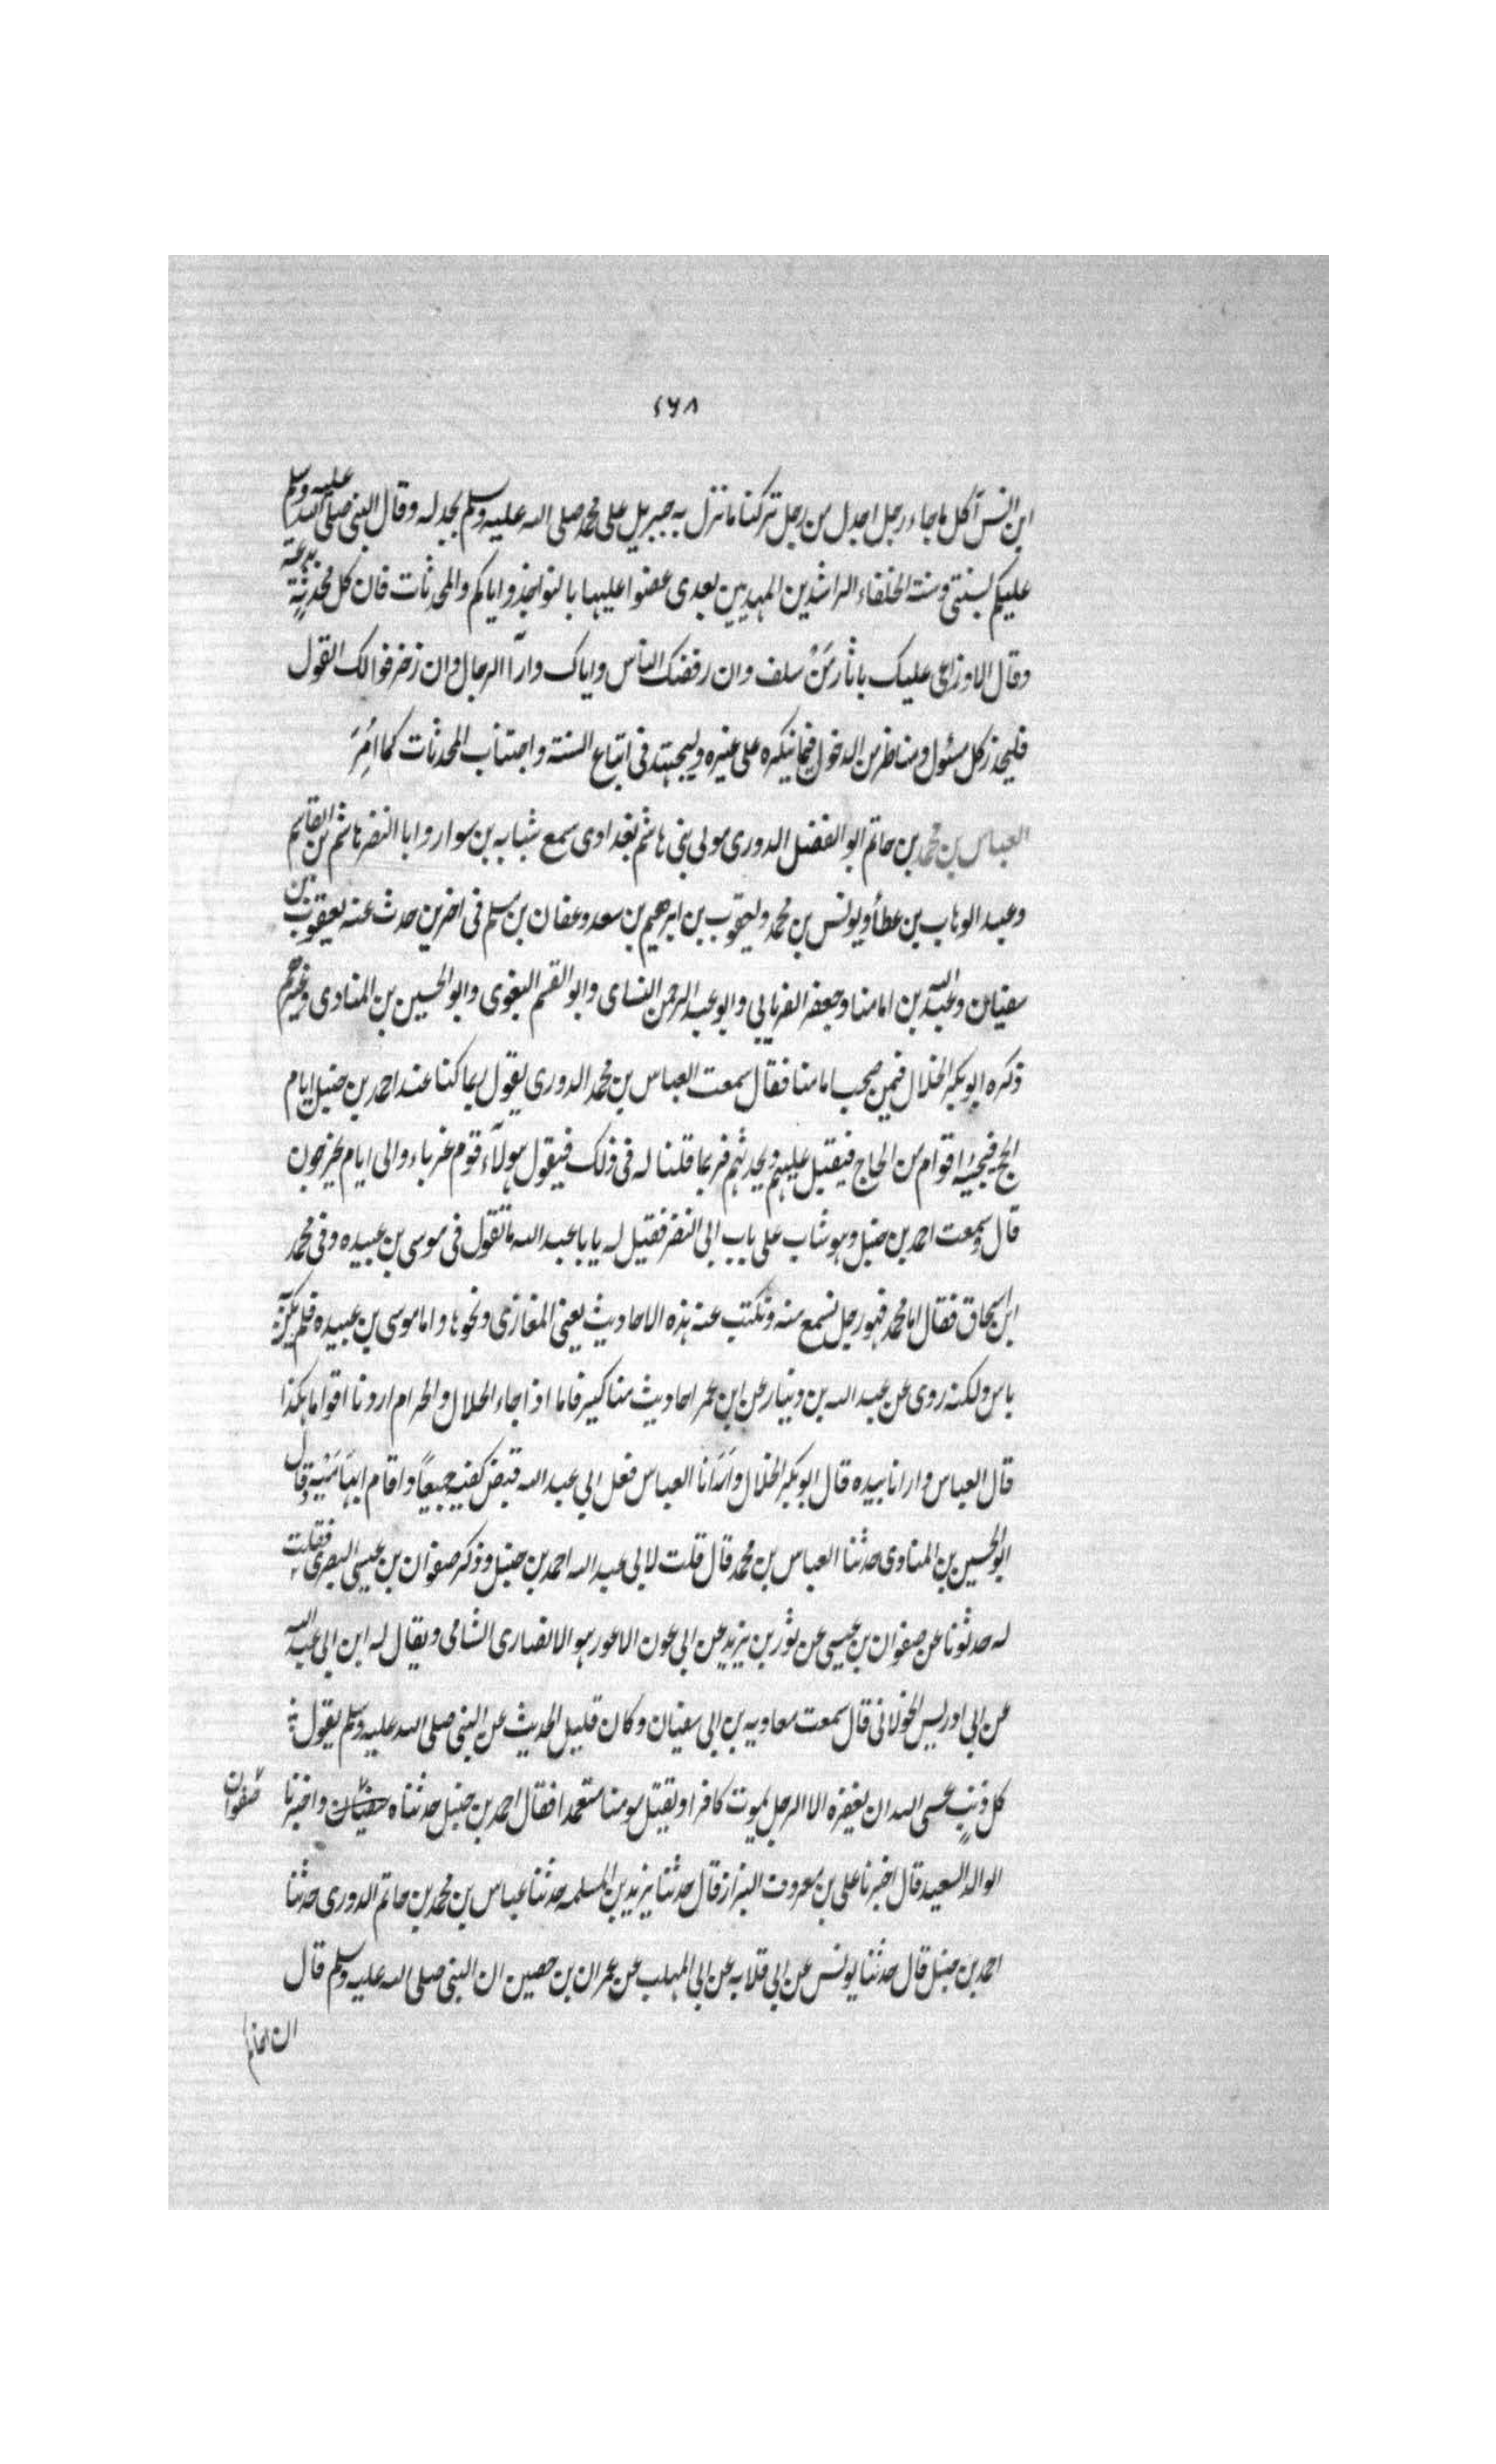 ٤٦٨
ابن انس أكل ما جاء رجل اجدل من رجل تركنا ما نزل به جبريل على محمد صلى الله عليه وسلم لجدله وقال النبى صلى الله عليه وسلم
عليكم بسنتى وسنة الخلفاء الراشدين المهديين بعدى عضوا عليها بالنواجذ واياكم والمحدثات فان كل محدثة بدعة
وقال الاوزاعى عليك باثار مَنْ سلف وان رفضك الناس واياك وارآ الرجال وان زخرفوا لك القول
فليحذر كل مسئول ومناظر من الدخول فيما ينكره على غيره وليجتهد فى اتباع السنة واجتناب المحدثات كما اُمِرَ
العباس بن محمد بن حاتم ابو الفضل الدورى مولى بنى هاشم بغدادى سمع شبابه بن سوار وابا النضر هاشم بن القاسم
وعبد الوهاب بن عطأ ويونس بن محمد ويعقوب بن ابرهيم بن سعد وعفان بن مسلم فى اخرين حدث عنه يعقوب بن
سفيان وعبد الله بن امامنا وجعفر الفريابي وابو عبد الرحمن النساى وابو القسم البغوى وابو الحسين بن المنادى وغيرهم
ذكره ابو بكر الخلال فيمن صحب امامنا فقال سمعت العباس بن محمد الدورى يقول ربما كنا عند احمد بن حنبل ايام
الحج فيجيئه اقوام من الحاج فيقبل عليهم ويحدثهم فربما قلنا له فى ذلك فيقول هولآء قوم غرباء والى ايام يخرجون
قال وسمعت احمد بن حنبل وهو شاب على باب ابى النضر فقيل له يا با عبد الله ما تقول فى موسى بن عبيده وفى محمد
ابن اسحاق فقال اما محمد فهو رجل نسمع منه ونكتب عنه هذه الاحاديث يعنى المغازى ونحوها واما موسى بن عبيده فلم يكن به
باس ولكنه روى عن عبد الله بن دينار عن ابن عمر احاديث مناكير فاما اذا جاء الحلال والحرام اردنا اقواما هكذا
قال العباس وارانا بيده قال ابو بكر الخلال وارَانا العباس فعل ابى عبد الله قبض كفيه جميعًا واقام ابهامَيْه وقال
ابو الحسين بن المنادى حدثنا العباس بن محمد قال قلت لابى عبد الله احمد بن حنبل وذكر صفوان بن عيسى البصرى فقلت
له حدثونا عن صفوان بن عيسى عن ثور بن يزيد عن ابى عون الاعور هو الانصارى الشامى ويقال له ابن ابى عبد الله
عن ابى ادريس الخولانى قال سمعت معاويه بن ابى سفيان وكان قليل الحديث عن النبى صلى الله عليه وسلم يقول
كل ذنبٍ عسى الله ان يغفره الا الرجل يموت كافرا او يقتل مومنا متعمدا فقال احمد بن حنبل حدثناه سفيان واخبرنا
صفوان
الوالد السعيد قال اخبرنا على بن معروف البزاز قال حدثنا يزيد بن المسلمه حدثنا عباس بن محمد بن حاتم الدورى حدثنا
احمد بن حنبل قال حدثنا يونس عن ابى قلابه عن ابى المهلب عن عمران بن حصين ان النبى صلى الله عليه وسلم قال
ان اخاكم